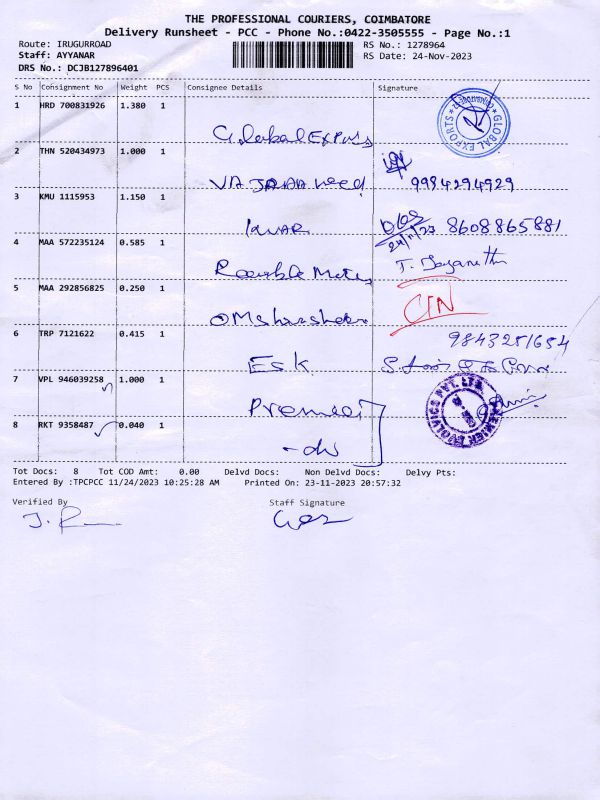 THE PROFESSIONAL COURIERS, COIMBATORE
Delivery Runsheet - PCC - Phone No.:0422-3505555 - Page No.:1
Route: IRUGURROAD RS No.: 1278964
Staff: AYYANAR RS Date: 24-Nov-2023
DRS No.: DCJB127896401
S No Consignment No Weight PCS Consignee Details Signature
1 HRD 700831926 1.380 1
Global Exports
GLOBAL EXPORTS
2 THN 520434973 1.000 1
9984294929
3 KMU 1115953 1.150 1
8608865881
24/11/23
4 MAA 572235124 0.585 1
5 MAA 292856825 0.250 1
6 TRP 7121622 0.415 1
9843251654
ESK
7 VPL 946039258 1.000 1
Premier
8 RKT 9358487 0.040 1
-do
Tot Docs: 8 Tot COD Amt: 0.00 Delvd Docs: Non Delvd Docs: Delvy Pts:
Entered By :TPCPCC 11/24/2023 10:25:28 AM Printed On: 23-11-2023 20:57:32
Verified By Staff Signature